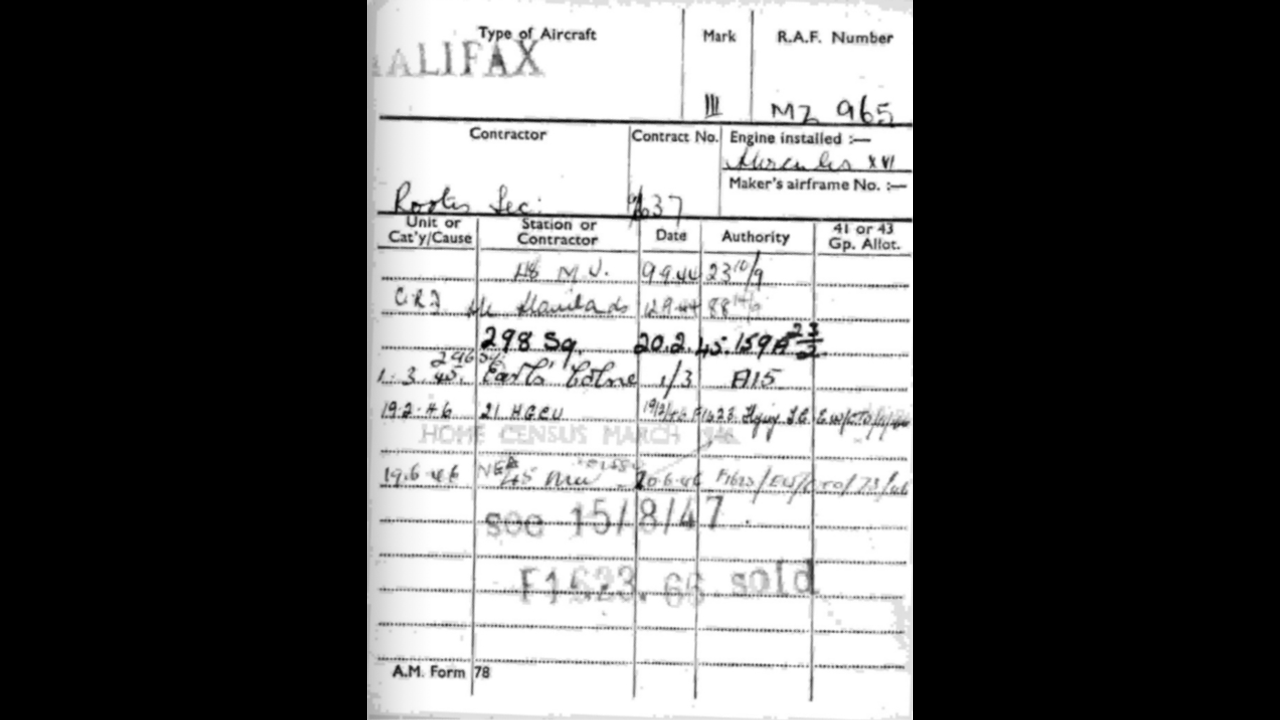 Type of Aircraft Mark R.A.F. Number
HALIFAX III MZ 965
Contractor Contract No. Engine installed :—
Hercules XVI
Maker's airframe No. :—
Rootes Sec. 637
Unit or Cat'y/Cause Station or Contractor Date Authority 41 or 43 Gp. Allot.
48 M.U. 9.9.44 23 10/9
12.9.44 88
298 Sq. 20.2.45. 159A 23/2
296 Sq.
1.3.45. Earls Colne 1/3 A15
19.2.46 21 HGCU F1623 Flying
HOME CENSUS MARCH 1946
19.6.46 NEA 45 MU 20.6.46 F1623/
soc 15/8/47.
F1623.66 sold
A.M. Form 78